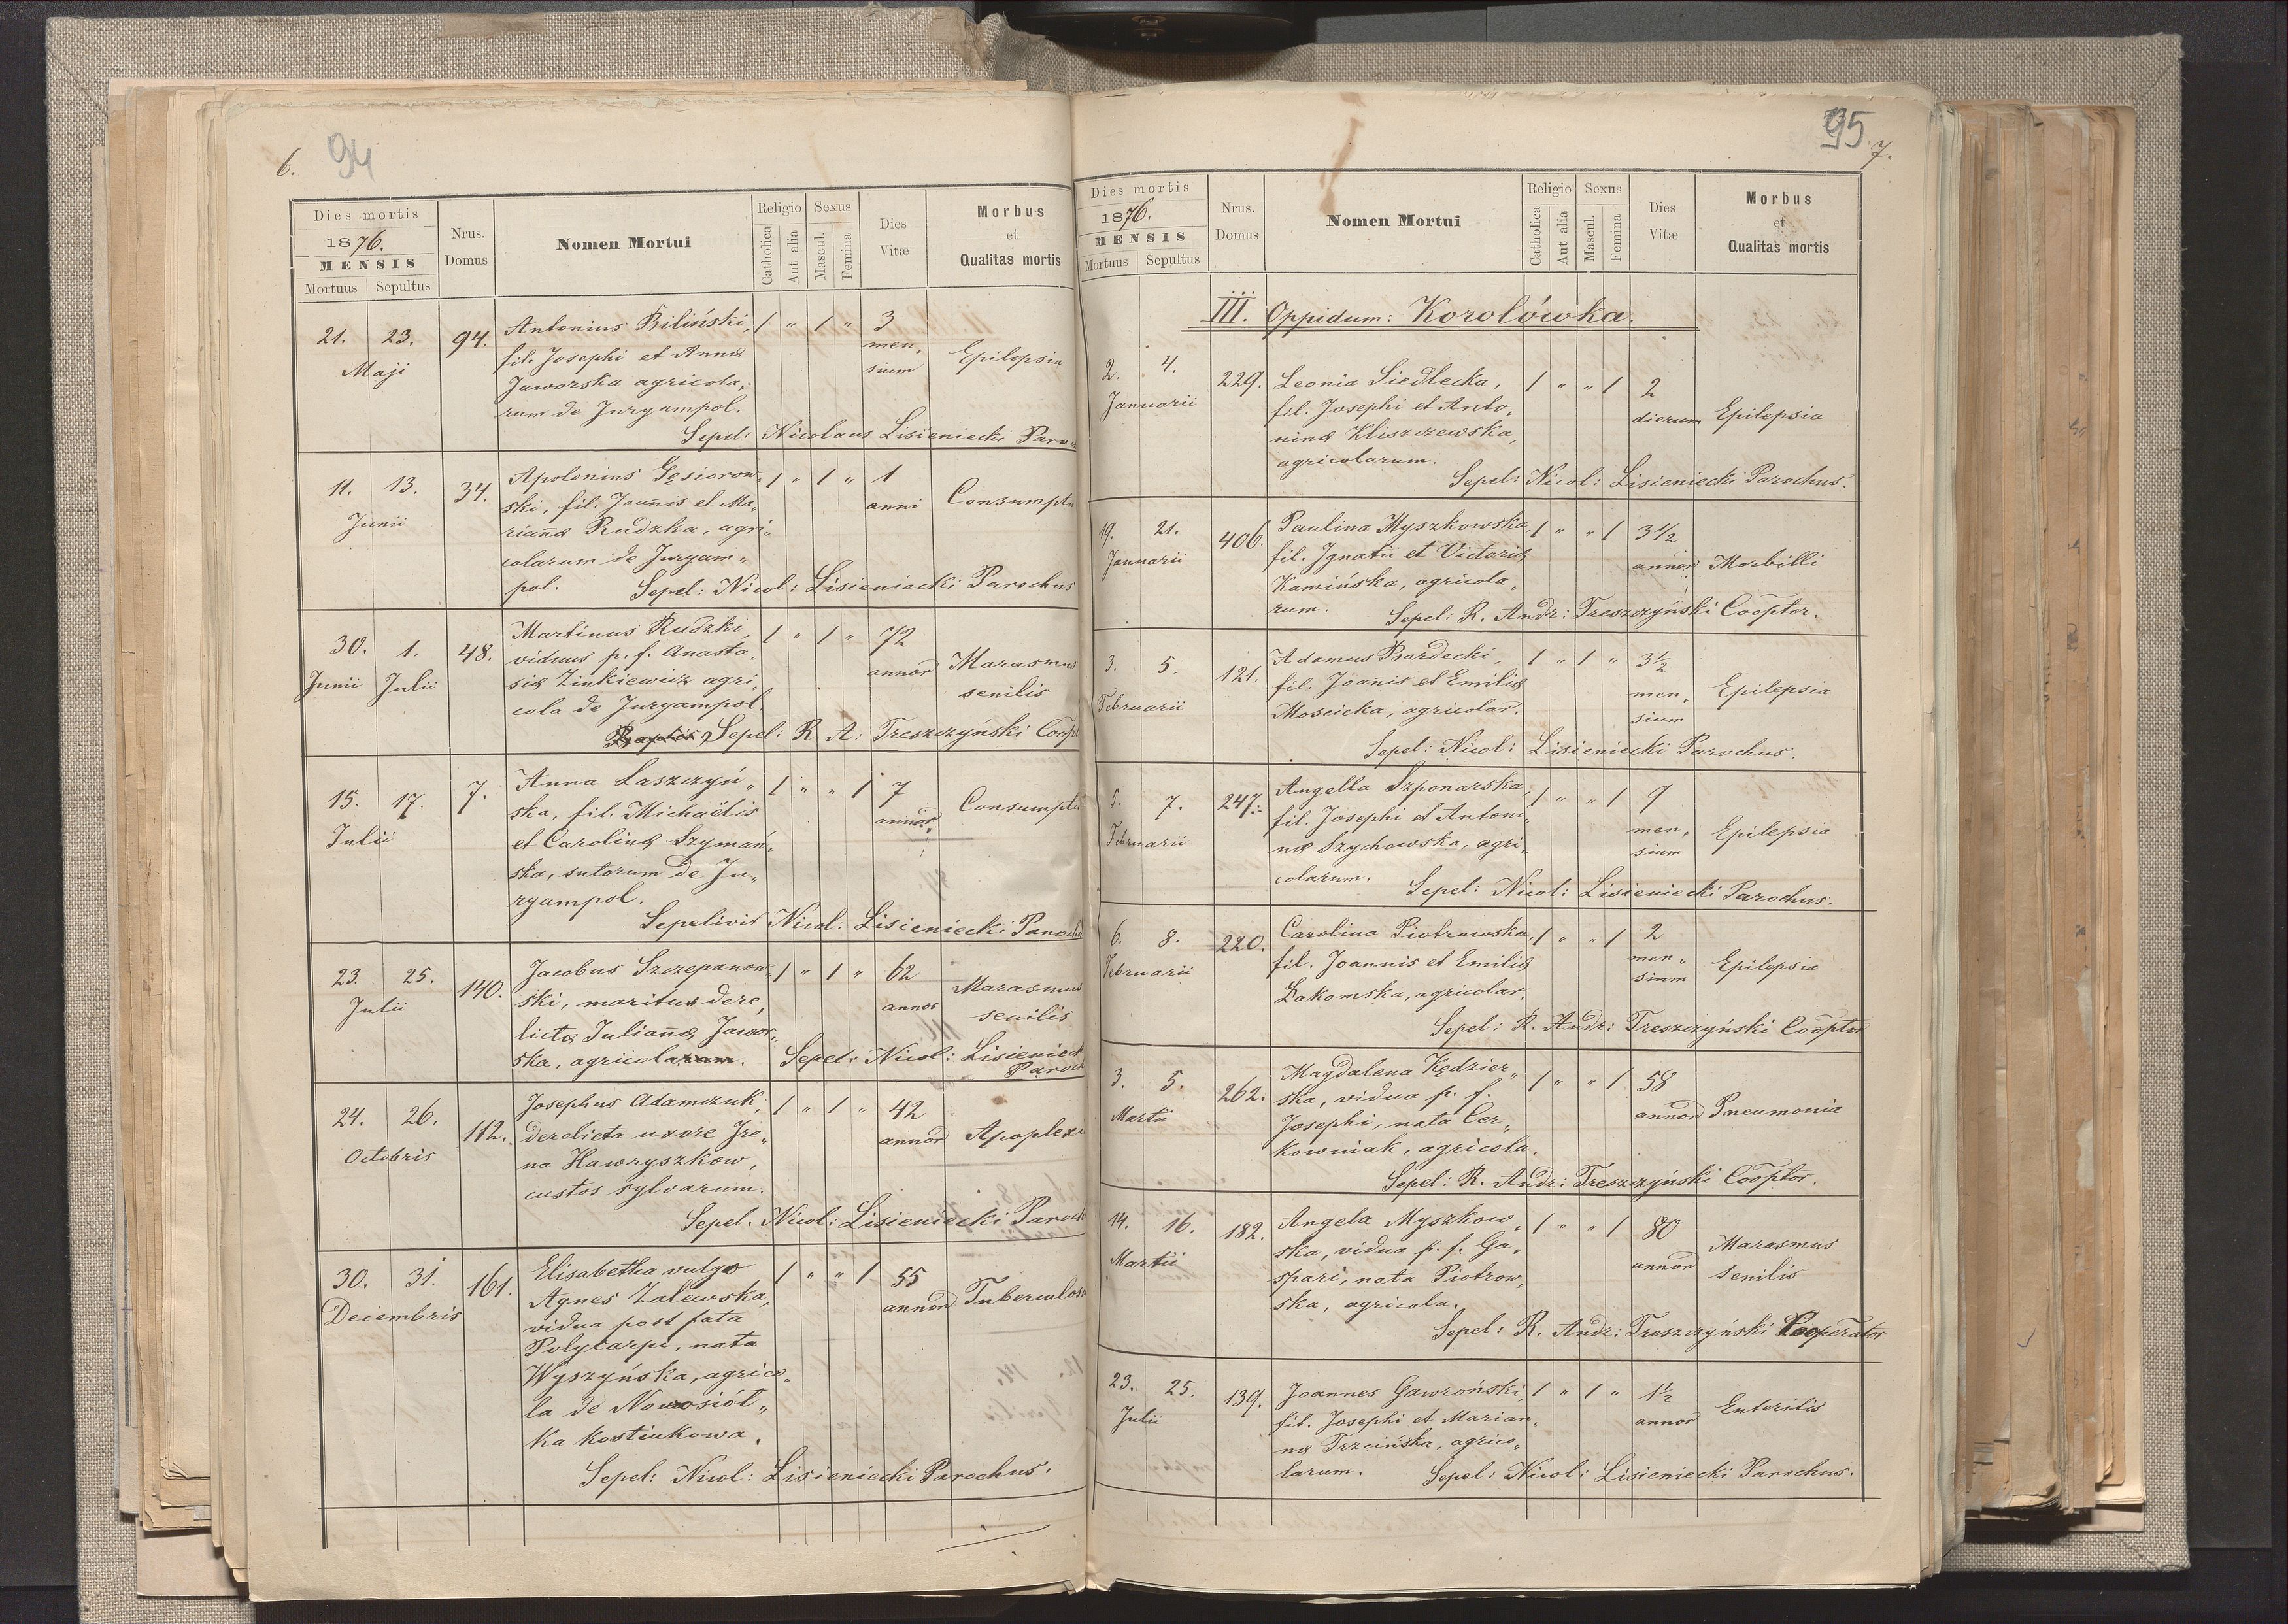 6. 94
Dies mortis
1876.
MENSIS
Mortuus Sepultus
Nrus.
Domus
Nomen Mortui
Religio
Catholica
Aut alia
Sexus
Mascul.
Femina
Dies
Vitæ
Morbus
et
Qualitas mortis
21. 23.
Maji
94.
Antonius Biliński,
fil. Josephi et Annæ
Jaworska agricola„
rum de Juryampol.
1 " 1 "
3
men„
sium
Epilepsia
Sepel: Nicolaus Lisieniecki Paro
11. 13.
Junii
34.
Apolonius Gęsiorow„
ski, fil. Joañis et Ma„
riañæ Rudzka, agri„
colarum de Juryam„
pol.
1 " 1 "
1
anni
Consumptu
Sepel: Nicol: Lisieniecki Parochus
30. 1.
Junii Julii
48.
Martinus Rudzki
viduus p. f. Anasta„
siæ Zinkiewicz agri„
cola de Juryampol.
1 " 1 "
72
annor
Marasmus
senilis
Sepel: R. A: Treszczyński Coop
15. 17.
Julii
7.
Anna Laszczyń„
ska, fil. Michaëlis
et Carolinæ Szymań„
ska, sutorum de Ju„
ryampol.
1 " " 1
7
annor.
Consumptu
Sepelivit Nicol: Lisieniecki Paroch
23. 25.
Julii
140.
Jacobus Szczepanow„
ski, maritus dere„
lictæ Juliañæ Jawor„
ska, agricolarum.
1 " 1 "
62
annor
Marasmus
senilis
Sepel: Nicol: Lisienieck
Paroch
24. 26.
Octobris
112.
Josephus Adamczuk,
derelicta uxore Jre„
na Hawryszkow,
custos sylvarum.
1 " 1 "
42
annor
Apoplexi
Sepel. Nicol: Lisieniecki Paroch
30. 31.
Decembris
161.
Elisabetha vulgo
Agnes Zalewska,
vidua post fata
Polycarpi, nata
Wyszyńska, agrico„
la de Nowosiół„
ka Kostiukowa.
1 " " 1
55
annor
Tuberculosi
Sepel: Nicol: Lisieniecki Parochus.
95 7.
Dies mortis
1876.
MENSIS
Mortuus Sepultus
Nrus.
Domus
Nomen Mortui
Religio
Catholica
Aut alia
Sexus
Mascul.
Femina
Dies
Vitæ
Morbus
et
Qualitas mortis
III. Oppidum: Korolówka.
2. 4.
Januarii
229.
Leonia Siedlecka,
fil. Josephi et Anto„
ninæ Kliszczewska,
agricolarum.
1 " " 1
2
dierum
Epilepsia
Sepel: Nicol: Lisieniecki Parochus.
19. 21.
Januarii
406.
Paulina Myszkowska,
fil. Jgnatii et Victoriæ
Kamińska, agricola„
rum.
1 " " 1
3 1/2
annor
Morbilli
Sepel: R. Andr: Treszczyński Cooptor.
3. 5.
Februarii
121.
Adamus Bardecki,
fil. Joañis et Emiliæ
Moscicka, agricolar.
1 " 1 "
3 1/2
men„
sium
Epilepsia
Sepel: Nicol: Lisieniecki Parochus.
5. 7.
Februarii
247.
Angella Szponarska,
fil. Josephi et Antoni„
næ Szychowska, agri„
colarum.
1 " " 1
9
men„
sium
Epilepsia
Sepel: Nicol: Lisieniecki Parochus.
6. 8.
Februarii
220.
Carolina Piotrowska,
fil. Joannis et Emiliæ
Łakomska, agricolar.
1 " " 1
2
men„
sium
Epilepsia
Sepel: R. Andr: Treszczyński Cooptor
3. 5.
Martii
262.
Magdalena Kędzier„
ska, vidua p. f.
Josephi, nata Cer„
kowniak, agricola.
1 " " 1
58
annor
Pneumonia
Sepel: R. Andr: Treszczyński Cooptor.
14. 16.
Martii
182.
Angela Myszkow„
ska, vidua p. f. Ga„
spari, nata Piotrow„
ska, agricola.
1 " " 1
80
annor
Marasmus
senilis
Sepel: R. Andr: Treszczyński Cooperator
23. 25.
Julii
139.
Joannes Gawroński,
fil. Josephi et Marian„
næ Trzcińska, agrico„
larum.
1 " 1 "
1 1/2
annor
Enteritis
Sepel: Nicol: Lisieniecki Parochus.